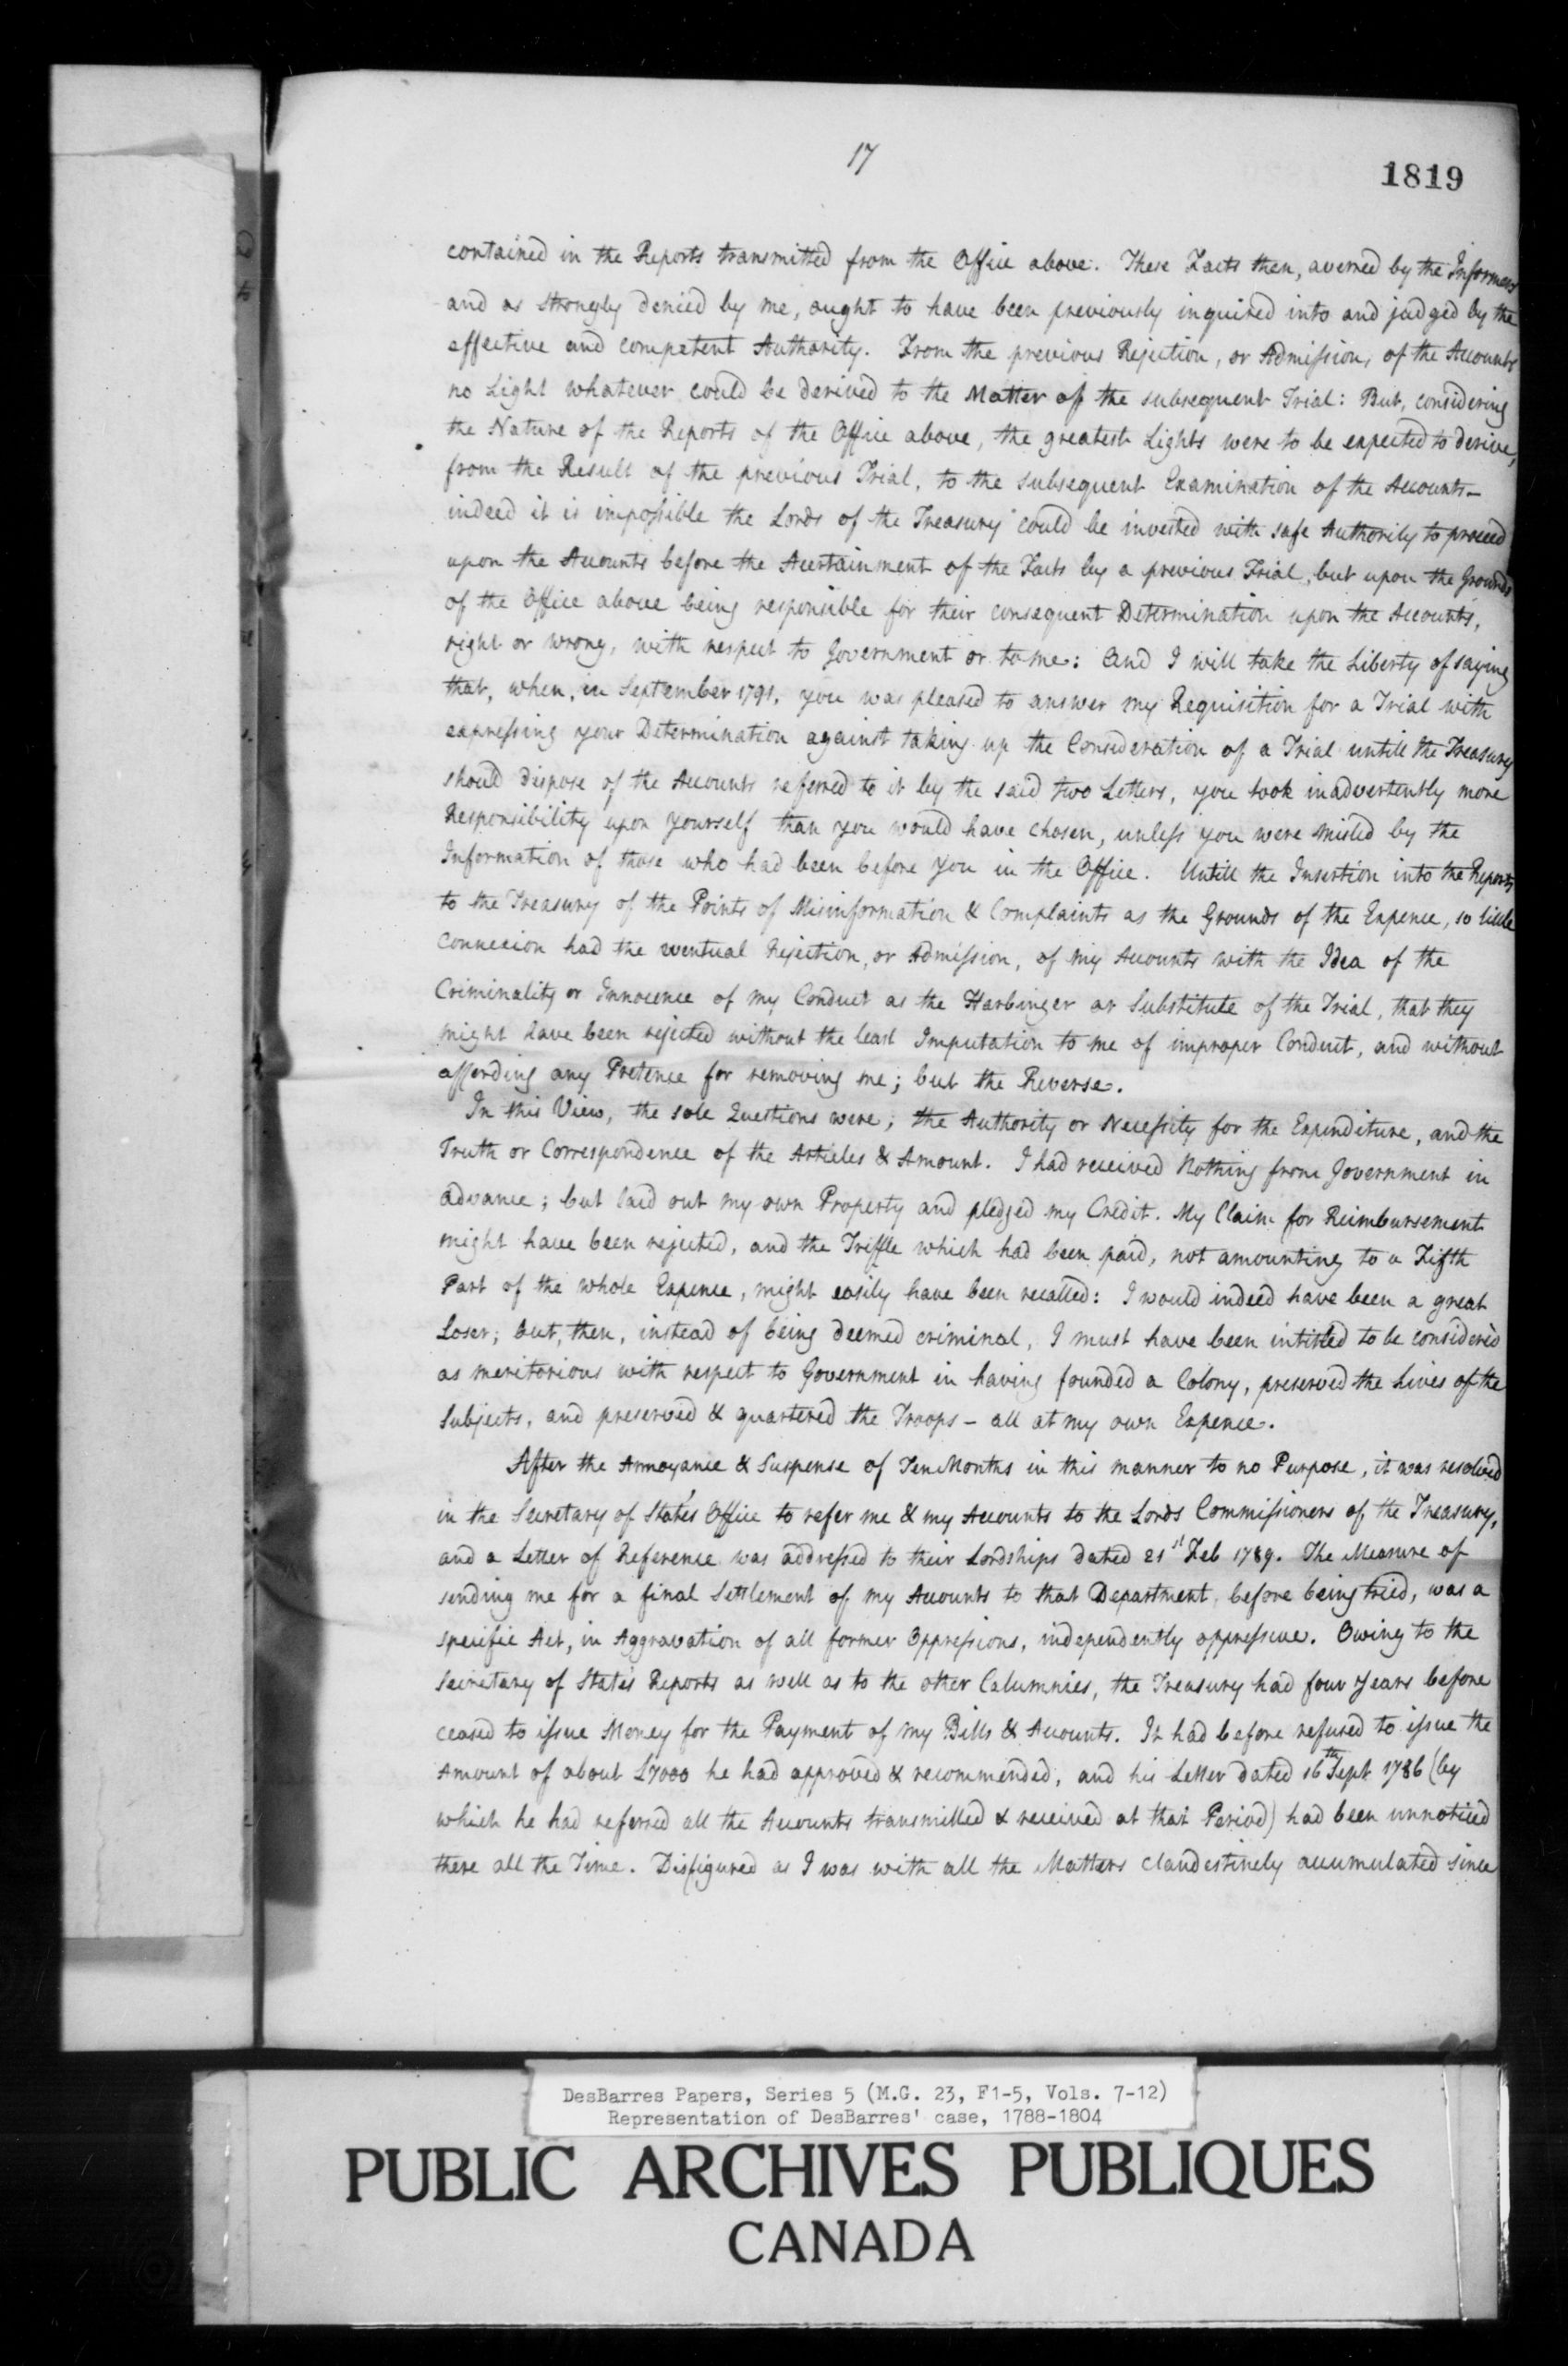 17
1819
contained in the Reports transmitted from the Office above. These Facts then, averred by the Informers
and as strongly denied by me, ought to have been previously inquired into and judged by the
effective and competent Authority. From the previous Rejection, or Admission, of the Accounts
no Light whatever could be derived to the Matter of the subsequent Trial: But, considering
the Nature of the Reports of the Office above, the greatest Lights were to be expected to derive,
from the Result of the previous Trial, to the subsequent Examination of the Accounts—
indeed it is impossible the Lords of the Treasury could be invested with safe Authority to proceed
upon the Accounts before the Ascertainment of the Facts by a previous Trial, but upon the Grounds
of the Office above being responsible for their consequent Determination upon the Accounts,
right or wrong, with respect to Government or to me: And I will take the Liberty of saying
that, when, in September 1791, you was pleased to answer my Requisition for a Trial with
expressing your Determination against taking up the Consideration of a Trial untill the Treasury
should dispose of the Accounts referred to it by the said two Letters, you took inadvertently more
Responsibility upon yourself than you would have chosen, unless you were misled by the
Information of those who had been before you in the Office. Untill the Insertion into the Reports
to the Treasury of the Points of Misinformation & Complaints as the Grounds of the Expence, so little
Connexion had the eventual Rejection, or Admission, of my Accounts with the Idea of the
Criminality or Innocence of my Conduct as the Harbinger or Substitute of the Trial, that they
might have been rejected without the least Imputation to me of improper Conduct, and without
affording any Pretence for removing me; but the Reverse.
In this View, the sole Questions were; the Authority or Necessity for the Expenditure, and the
Truth or Correspondence of the Articles & Amount. I had received Nothing from Government in
advance; but laid out my own Property and pledged my Credit. My Claim for Reimbursement
might have been rejected, and the Triffle which had been paid, not amounting to a Fifth
Part of the whole Expence, might easily have been recalled: I would indeed have been a great
Loser; but, then, instead of being deemed criminal, I must have been intitled to be considered
as meritorious with respect to Government in having founded a Colony, preserved the Lives of the
Subjects, and preserved & quartered the Troops — all at my own Expence.
After the Annoyance & Suspense of Ten Months in this manner to no Purpose, it was resolved
in the Secretary of State's Office to refer me & my Accounts to the Lords Commissioners of the Treasury,
and a Letter of Reference was addressed to their Lordships dated 21st Feb 1789. The Measure of
sending me for a final Settlement of my Accounts to that Department, before being tried, was a
specific Act, in Aggravation of all former Oppressions, independently oppressive. Owing to the
Secretary of State's Reports as well as to the other Calumnies, the Treasury had four years before
ceased to issue Money for the Payment of my Bills & Accounts. It had before refused to issue the
Amount of about £7000 he had approved & recommended, and his Letter dated 16th Sept 1786 (by
which he had referred all the Accounts transmitted & received at that Period) had been unnoticed
there all the Time. Disfigured as I was with all the Matters clandestinely accumulated since
DesBarres Papers, Series 5 (M.G. 23, F1-5, Vols. 7-12)
Representation of DesBarres' case, 1788-1804
PUBLIC ARCHIVES PUBLIQUES
CANADA